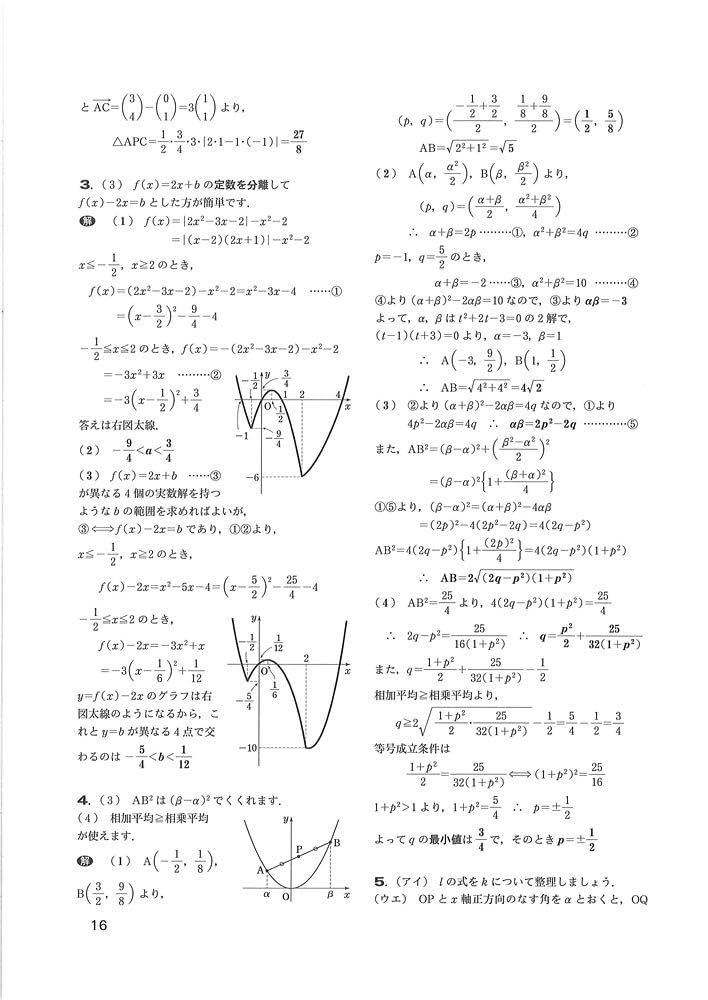 と $\overrightarrow{AC}=\begin{pmatrix}3\\4\end{pmatrix}-\begin{pmatrix}0\\1\end{pmatrix}=3\begin{pmatrix}1\\1\end{pmatrix}$ より，
△APC=$\frac{1}{2}\cdot\frac{3}{4}\cdot3\cdot|2\cdot1-1\cdot(-1)|=\frac{27}{8}$
3．（3） f(x)=2x+b の定数を分離して
f(x)−2x=b とした方が簡単です．
解 （1） f(x)=|2x²−3x−2|−x²−2
=|(x−2)(2x+1)|−x²−2
x≦−$\frac{1}{2}$，x≧2 のとき，
f(x)=(2x²−3x−2)−x²−2=x²−3x−4 ……①
=$\left(x-\frac{3}{2}\right)^2-\frac{9}{4}-4$
−$\frac{1}{2}$≦x≦2 のとき，f(x)=−(2x²−3x−2)−x²−2
=−3x²+3x ………②
=$-3\left(x-\frac{1}{2}\right)^2+\frac{3}{4}$
答えは右図太線．
（2） $-\frac{9}{4}<a<\frac{3}{4}$
（3） f(x)=2x+b ……③
が異なる 4 個の実数解を持つ
ような b の範囲を求めればよいが，
③⟺f(x)−2x=b であり，①②より，
x≦−$\frac{1}{2}$，x≧2 のとき，
f(x)−2x=x²−5x−4=$\left(x-\frac{5}{2}\right)^2-\frac{25}{4}-4$
−$\frac{1}{2}$≦x≦2 のとき，
f(x)−2x=−3x²+x
=$-3\left(x-\frac{1}{6}\right)^2+\frac{1}{12}$
y=f(x)−2x のグラフは右
図太線のようになるから，こ
れと y=b が異なる 4 点で交
わるのは $-\frac{5}{4}<b<\frac{1}{12}$
$-\frac{1}{2}$ y $\frac{3}{4}$
O $\frac{1}{2}$ 1 2 4 x
−1 $-\frac{9}{4}$
−6
y
$-\frac{1}{2}$ $\frac{1}{12}$ 2
O $\frac{1}{6}$ x
$-\frac{5}{4}$
−10
4．（3） AB² は (β−α)² でくくれます．
（4） 相加平均≧相乗平均
が使えます．
解 （1） A$\left(-\frac{1}{2},\ \frac{1}{8}\right)$，
B$\left(\frac{3}{2},\ \frac{9}{8}\right)$ より，
y
A P B
α O β x
16
(p, q)=$\left(\frac{-\frac{1}{2}+\frac{3}{2}}{2},\ \frac{\frac{1}{8}+\frac{9}{8}}{2}\right)=\left(\frac{1}{2},\ \frac{5}{8}\right)$
AB=$\sqrt{2^2+1^2}=\sqrt{5}$
（2） A$\left(α,\ \frac{α^2}{2}\right)$，B$\left(β,\ \frac{β^2}{2}\right)$ より，
(p, q)=$\left(\frac{α+β}{2},\ \frac{α^2+β^2}{4}\right)$
∴ α+β=2p ………①，α²+β²=4q ………②
p=−1，q=$\frac{5}{2}$ のとき，
α+β=−2 ……③，α²+β²=10 ………④
④より (α+β)²−2αβ=10 なので，③より αβ=−3
よって，α，β は t²+2t−3=0 の 2 解で，
(t−1)(t+3)=0 より，α=−3，β=1
∴ A$\left(-3,\ \frac{9}{2}\right)$，B$\left(1,\ \frac{1}{2}\right)$
∴ AB=$\sqrt{4^2+4^2}=4\sqrt{2}$
（3） ②より (α+β)²−2αβ=4q なので，①より
4p²−2αβ=4q ∴ αβ=2p²−2q …………⑤
また，AB²=(β−α)²+$\left(\frac{β^2-α^2}{2}\right)^2$
=(β−α)²$\left\{1+\frac{(β+α)^2}{4}\right\}$
①⑤より，(β−α)²=(α+β)²−4αβ
=(2p)²−4(2p²−2q)=4(2q−p²)
AB²=4(2q−p²)$\left\{1+\frac{(2p)^2}{4}\right\}$=4(2q−p²)(1+p²)
∴ AB=2$\sqrt{(2q-p^2)(1+p^2)}$
（4） AB²=$\frac{25}{4}$ より，4(2q−p²)(1+p²)=$\frac{25}{4}$
∴ 2q−p²=$\frac{25}{16(1+p^2)}$ ∴ q=$\frac{p^2}{2}+\frac{25}{32(1+p^2)}$
また，q=$\frac{1+p^2}{2}+\frac{25}{32(1+p^2)}-\frac{1}{2}$
相加平均≧相乗平均より，
q≧2$\sqrt{\frac{1+p^2}{2}\cdot\frac{25}{32(1+p^2)}}-\frac{1}{2}=\frac{5}{4}-\frac{1}{2}=\frac{3}{4}$
等号成立条件は
$\frac{1+p^2}{2}=\frac{25}{32(1+p^2)}$⟺(1+p²)²=$\frac{25}{16}$
1+p²>1 より，1+p²=$\frac{5}{4}$ ∴ p=±$\frac{1}{2}$
よって q の最小値は $\frac{3}{4}$ で，そのとき p=±$\frac{1}{2}$
5．（アイ） l の式を k について整理しましょう．
（ウエ） OP と x 軸正方向のなす角を α とおくと，OQ